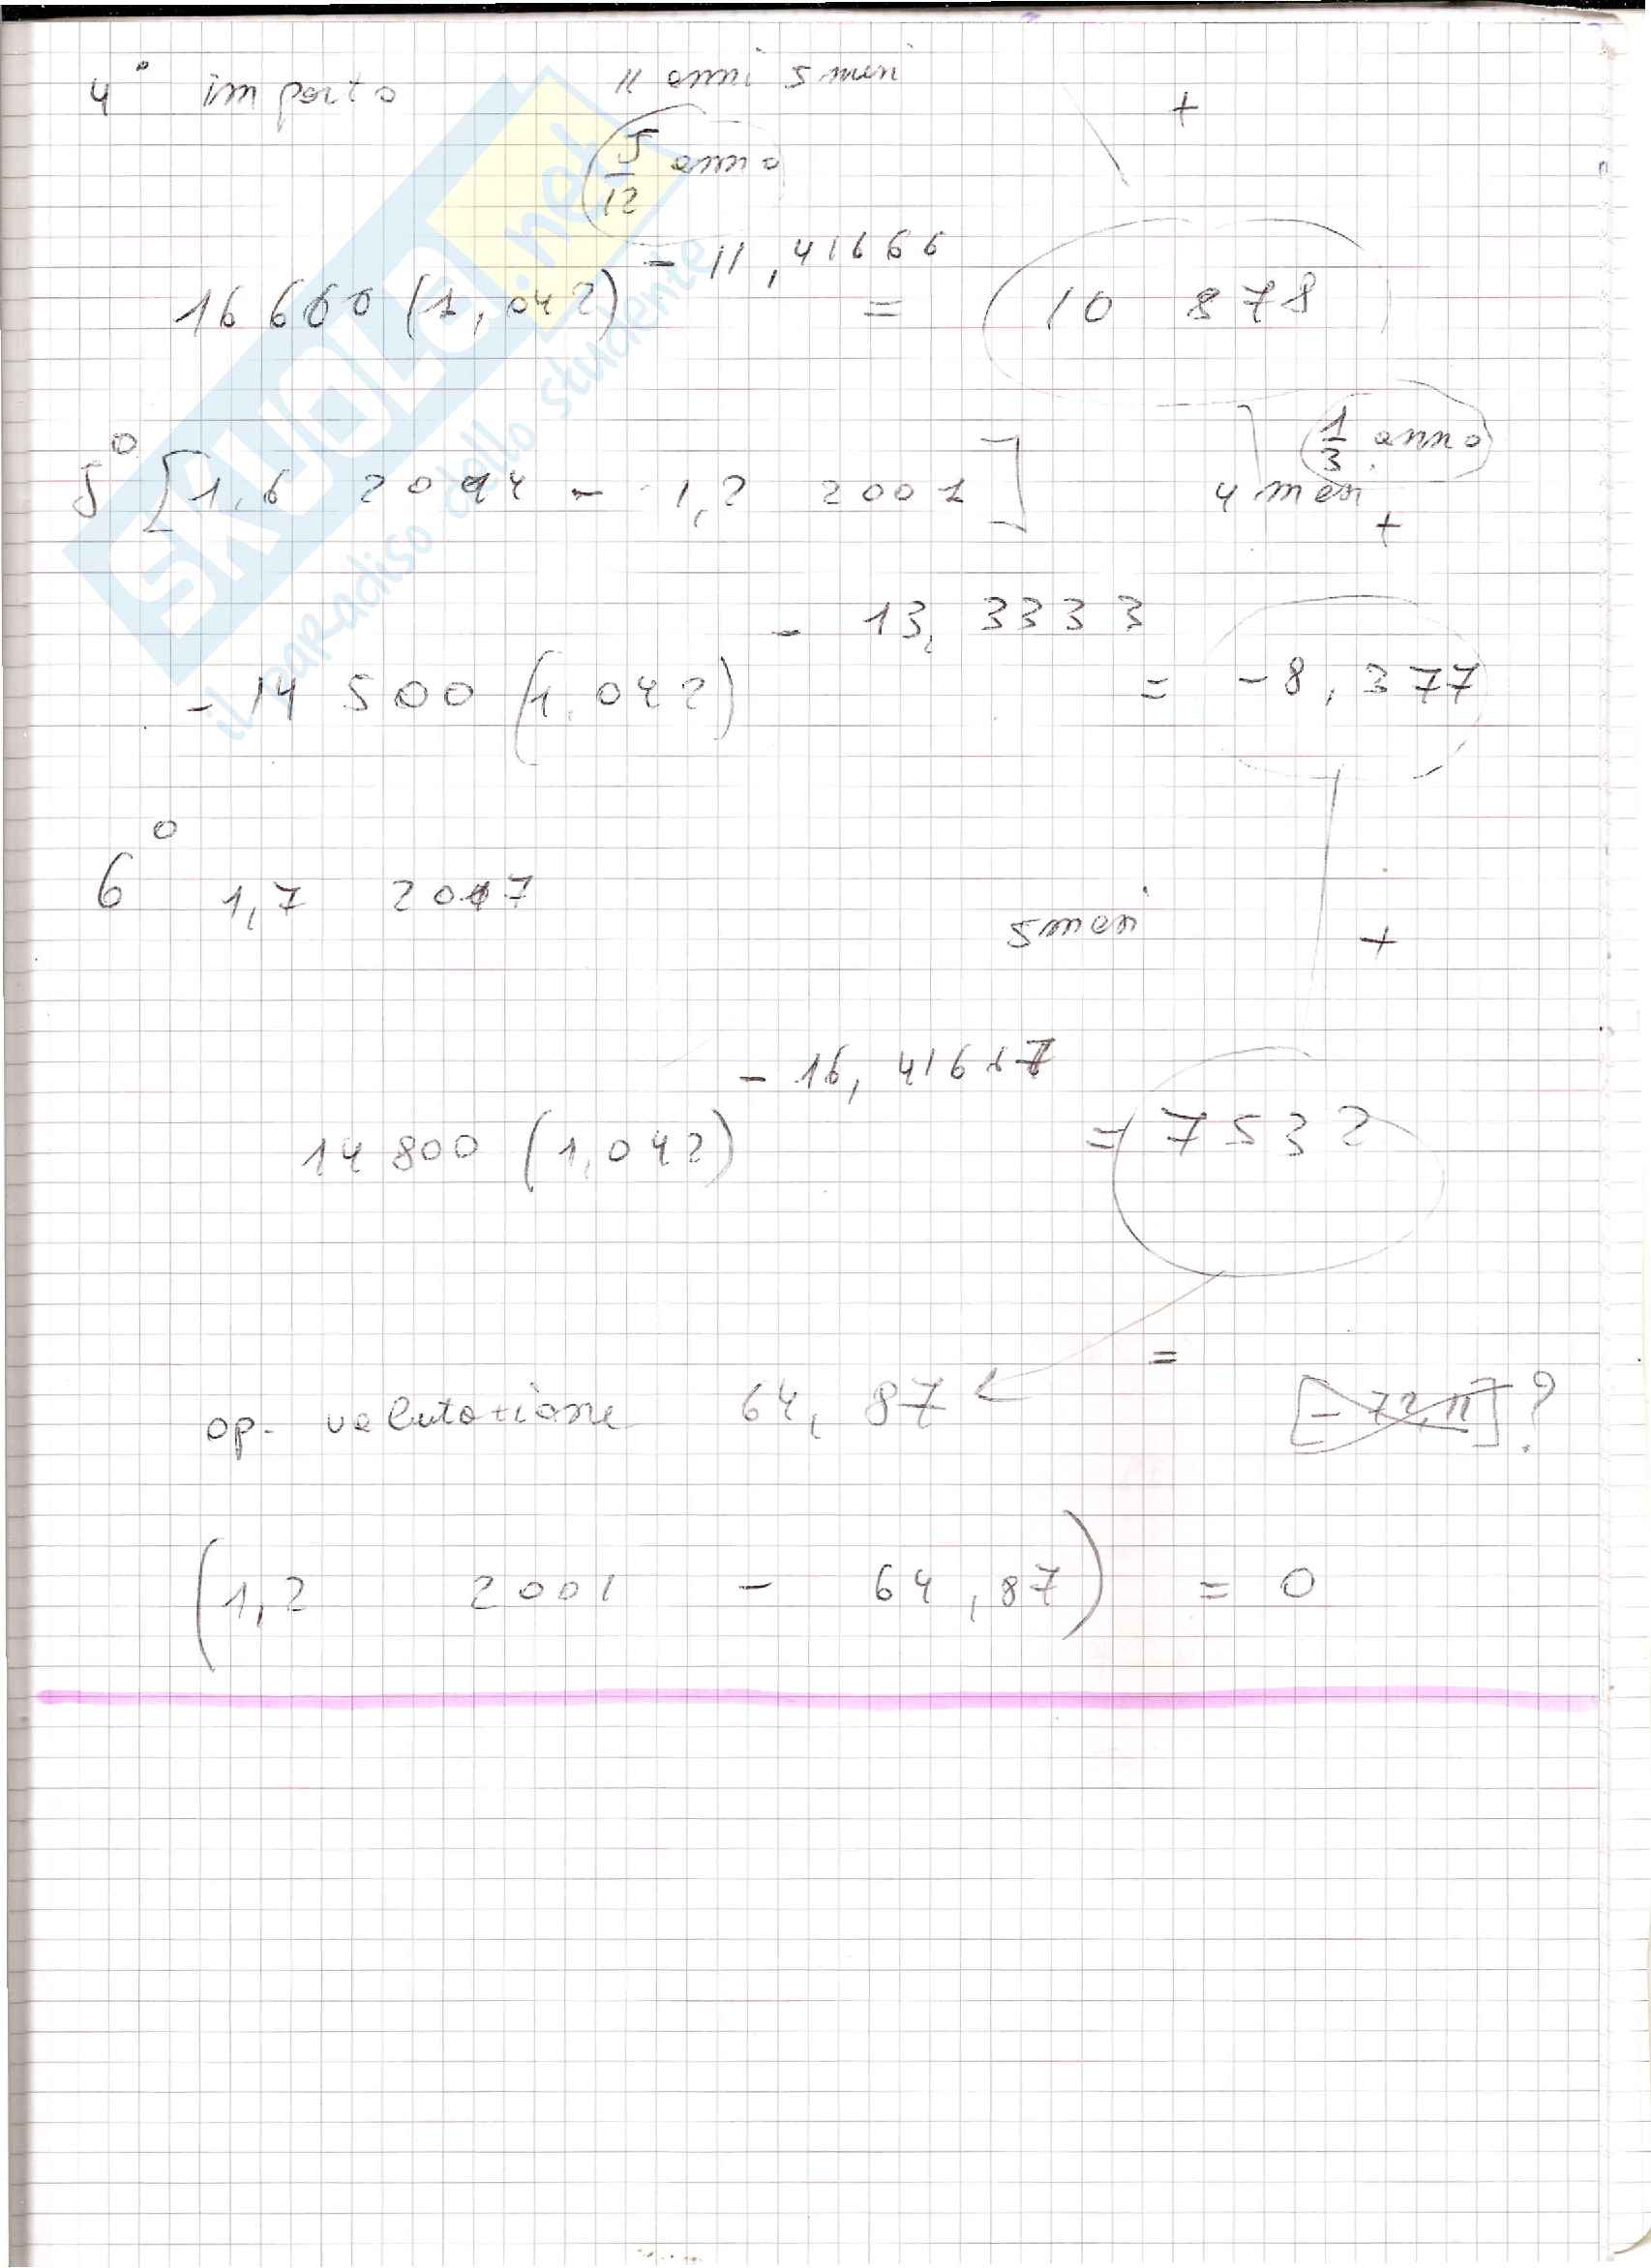 4° importo 11 anni 5 mesi +
5/12 anno
16660 (1,042)^-11,41666 = (10 878
5° [1,6 2014 - 1,2 2001] 4 mesi 1/3 anno
+
- 14 500 (1,042)^-13,3333 = -8,377
6° 1,7 2017
5 mesi +
14 800 (1,042)^-16,41667 = 7532
=
op. valutazione 64,87 [-72,11]?
(1,2 2001 - 64,87) = 0
SKUOLA.net
il paradiso dello studente